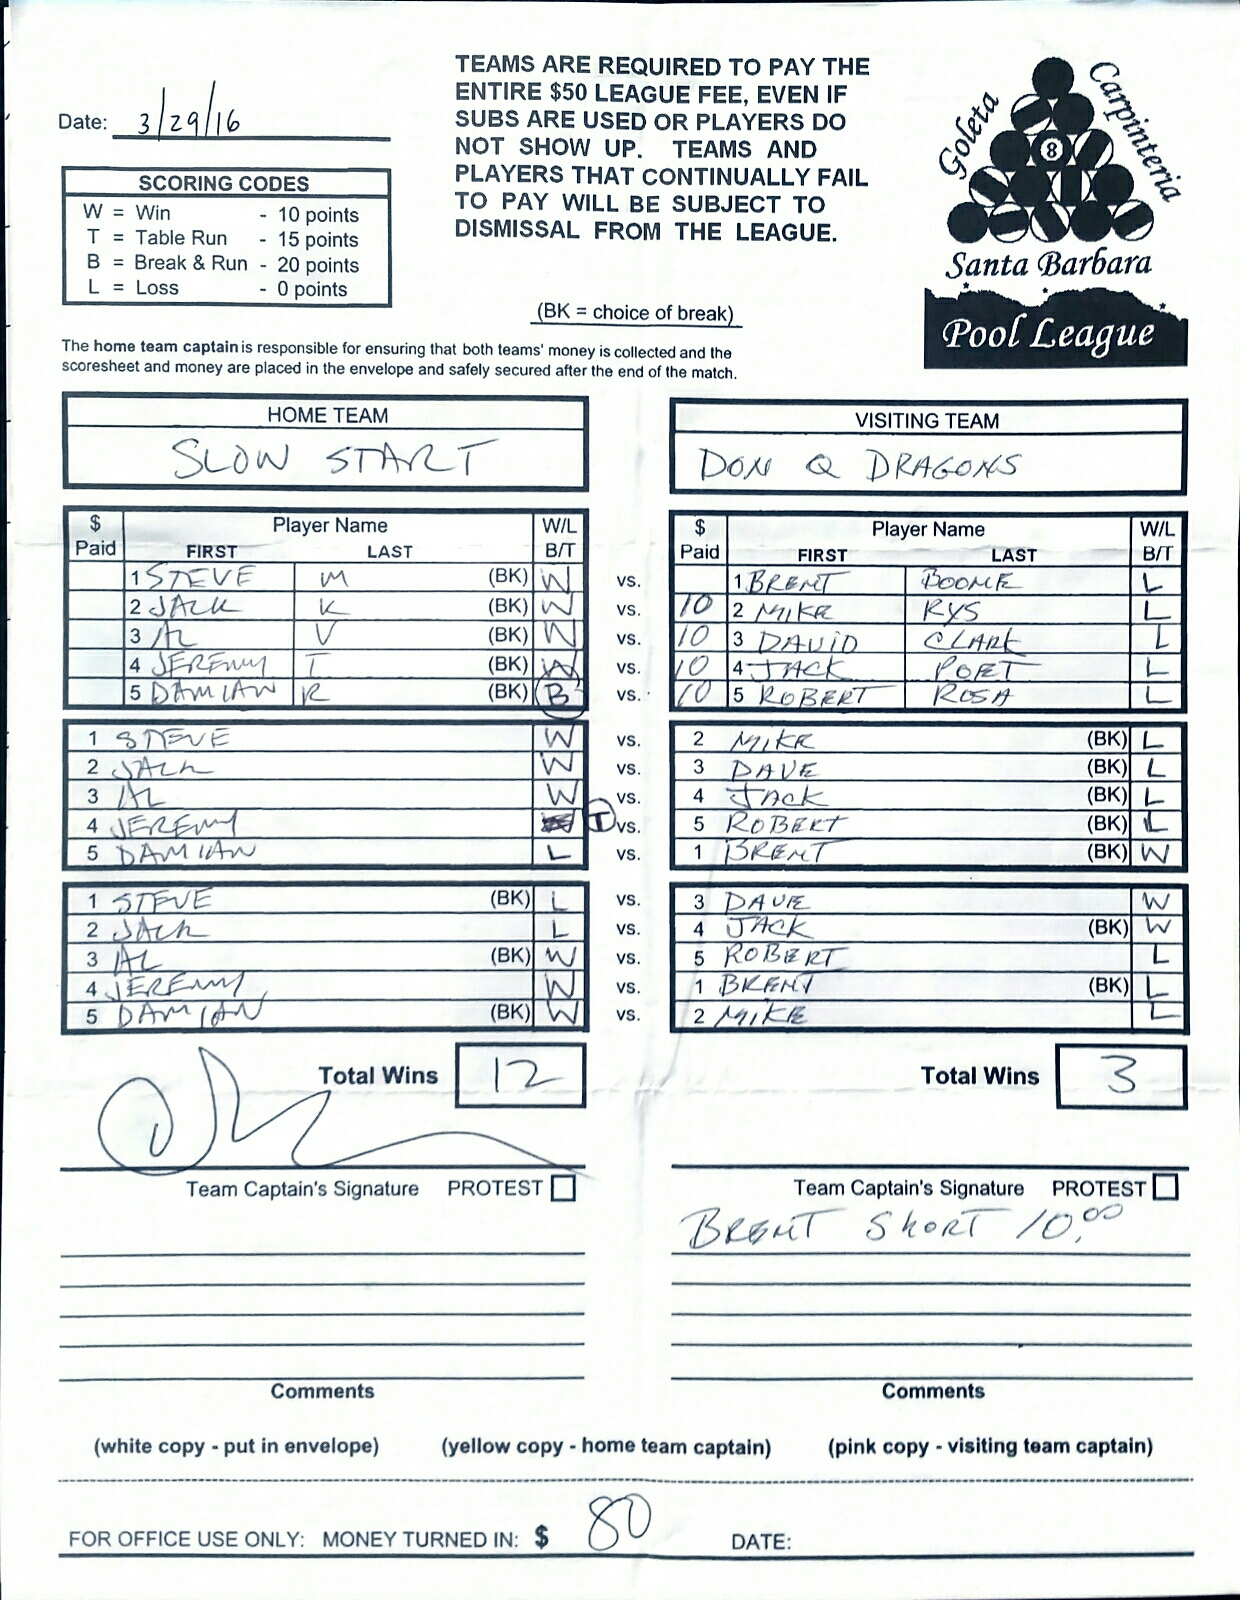 Date: 3/29/16
TEAMS ARE REQUIRED TO PAY THE
ENTIRE $50 LEAGUE FEE, EVEN IF
SUBS ARE USED OR PLAYERS DO
NOT SHOW UP. TEAMS AND
PLAYERS THAT CONTINUALLY FAIL
TO PAY WILL BE SUBJECT TO
DISMISSAL FROM THE LEAGUE.
Goleta
Carpinteria
8
Santa Barbara
Pool League
SCORING CODES
W = Win - 10 points
T = Table Run - 15 points
B = Break & Run - 20 points
L = Loss - 0 points
(BK = choice of break)
The home team captain is responsible for ensuring that both teams' money is collected and the
scoresheet and money are placed in the envelope and safely secured after the end of the match.
HOME TEAM VISITING TEAM
SLOW START DON Q DRAGONS
$ Paid Player Name FIRST LAST W/L B/T $ Paid Player Name FIRST LAST W/L B/T
1 STEVE M (BK) W vs. 1 BRENT BOONE L
2 JACK K (BK) W vs. 10 2 MIKE RYS L
3 AL V (BK) W vs. 10 3 DAVID CLARK L
4 JEREMY T (BK) W vs. 10 4 JACK POET L
5 DAMIAN R (BK) B vs. 10 5 ROBERT ROSA L
1 STEVE W vs. 2 MIKE (BK) L
2 JACK W vs. 3 DAVE (BK) L
3 AL W vs. 4 JACK (BK) L
4 JEREMY T vs. 5 ROBERT (BK) L
5 DAMIAN L vs. 1 BRENT (BK) W
1 STEVE (BK) L vs. 3 DAVE W
2 JACK L vs. 4 JACK (BK) W
3 AL (BK) W vs. 5 ROBERT L
4 JEREMY W vs. 1 BRENT (BK) L
5 DAMIAN (BK) W vs. 2 MIKE L
Total Wins 12 Total Wins 3
Team Captain's Signature PROTEST Team Captain's Signature PROTEST
BRENT SHORT 10.00
Comments Comments
(white copy - put in envelope) (yellow copy - home team captain) (pink copy - visiting team captain)
FOR OFFICE USE ONLY: MONEY TURNED IN: $ 80 DATE: